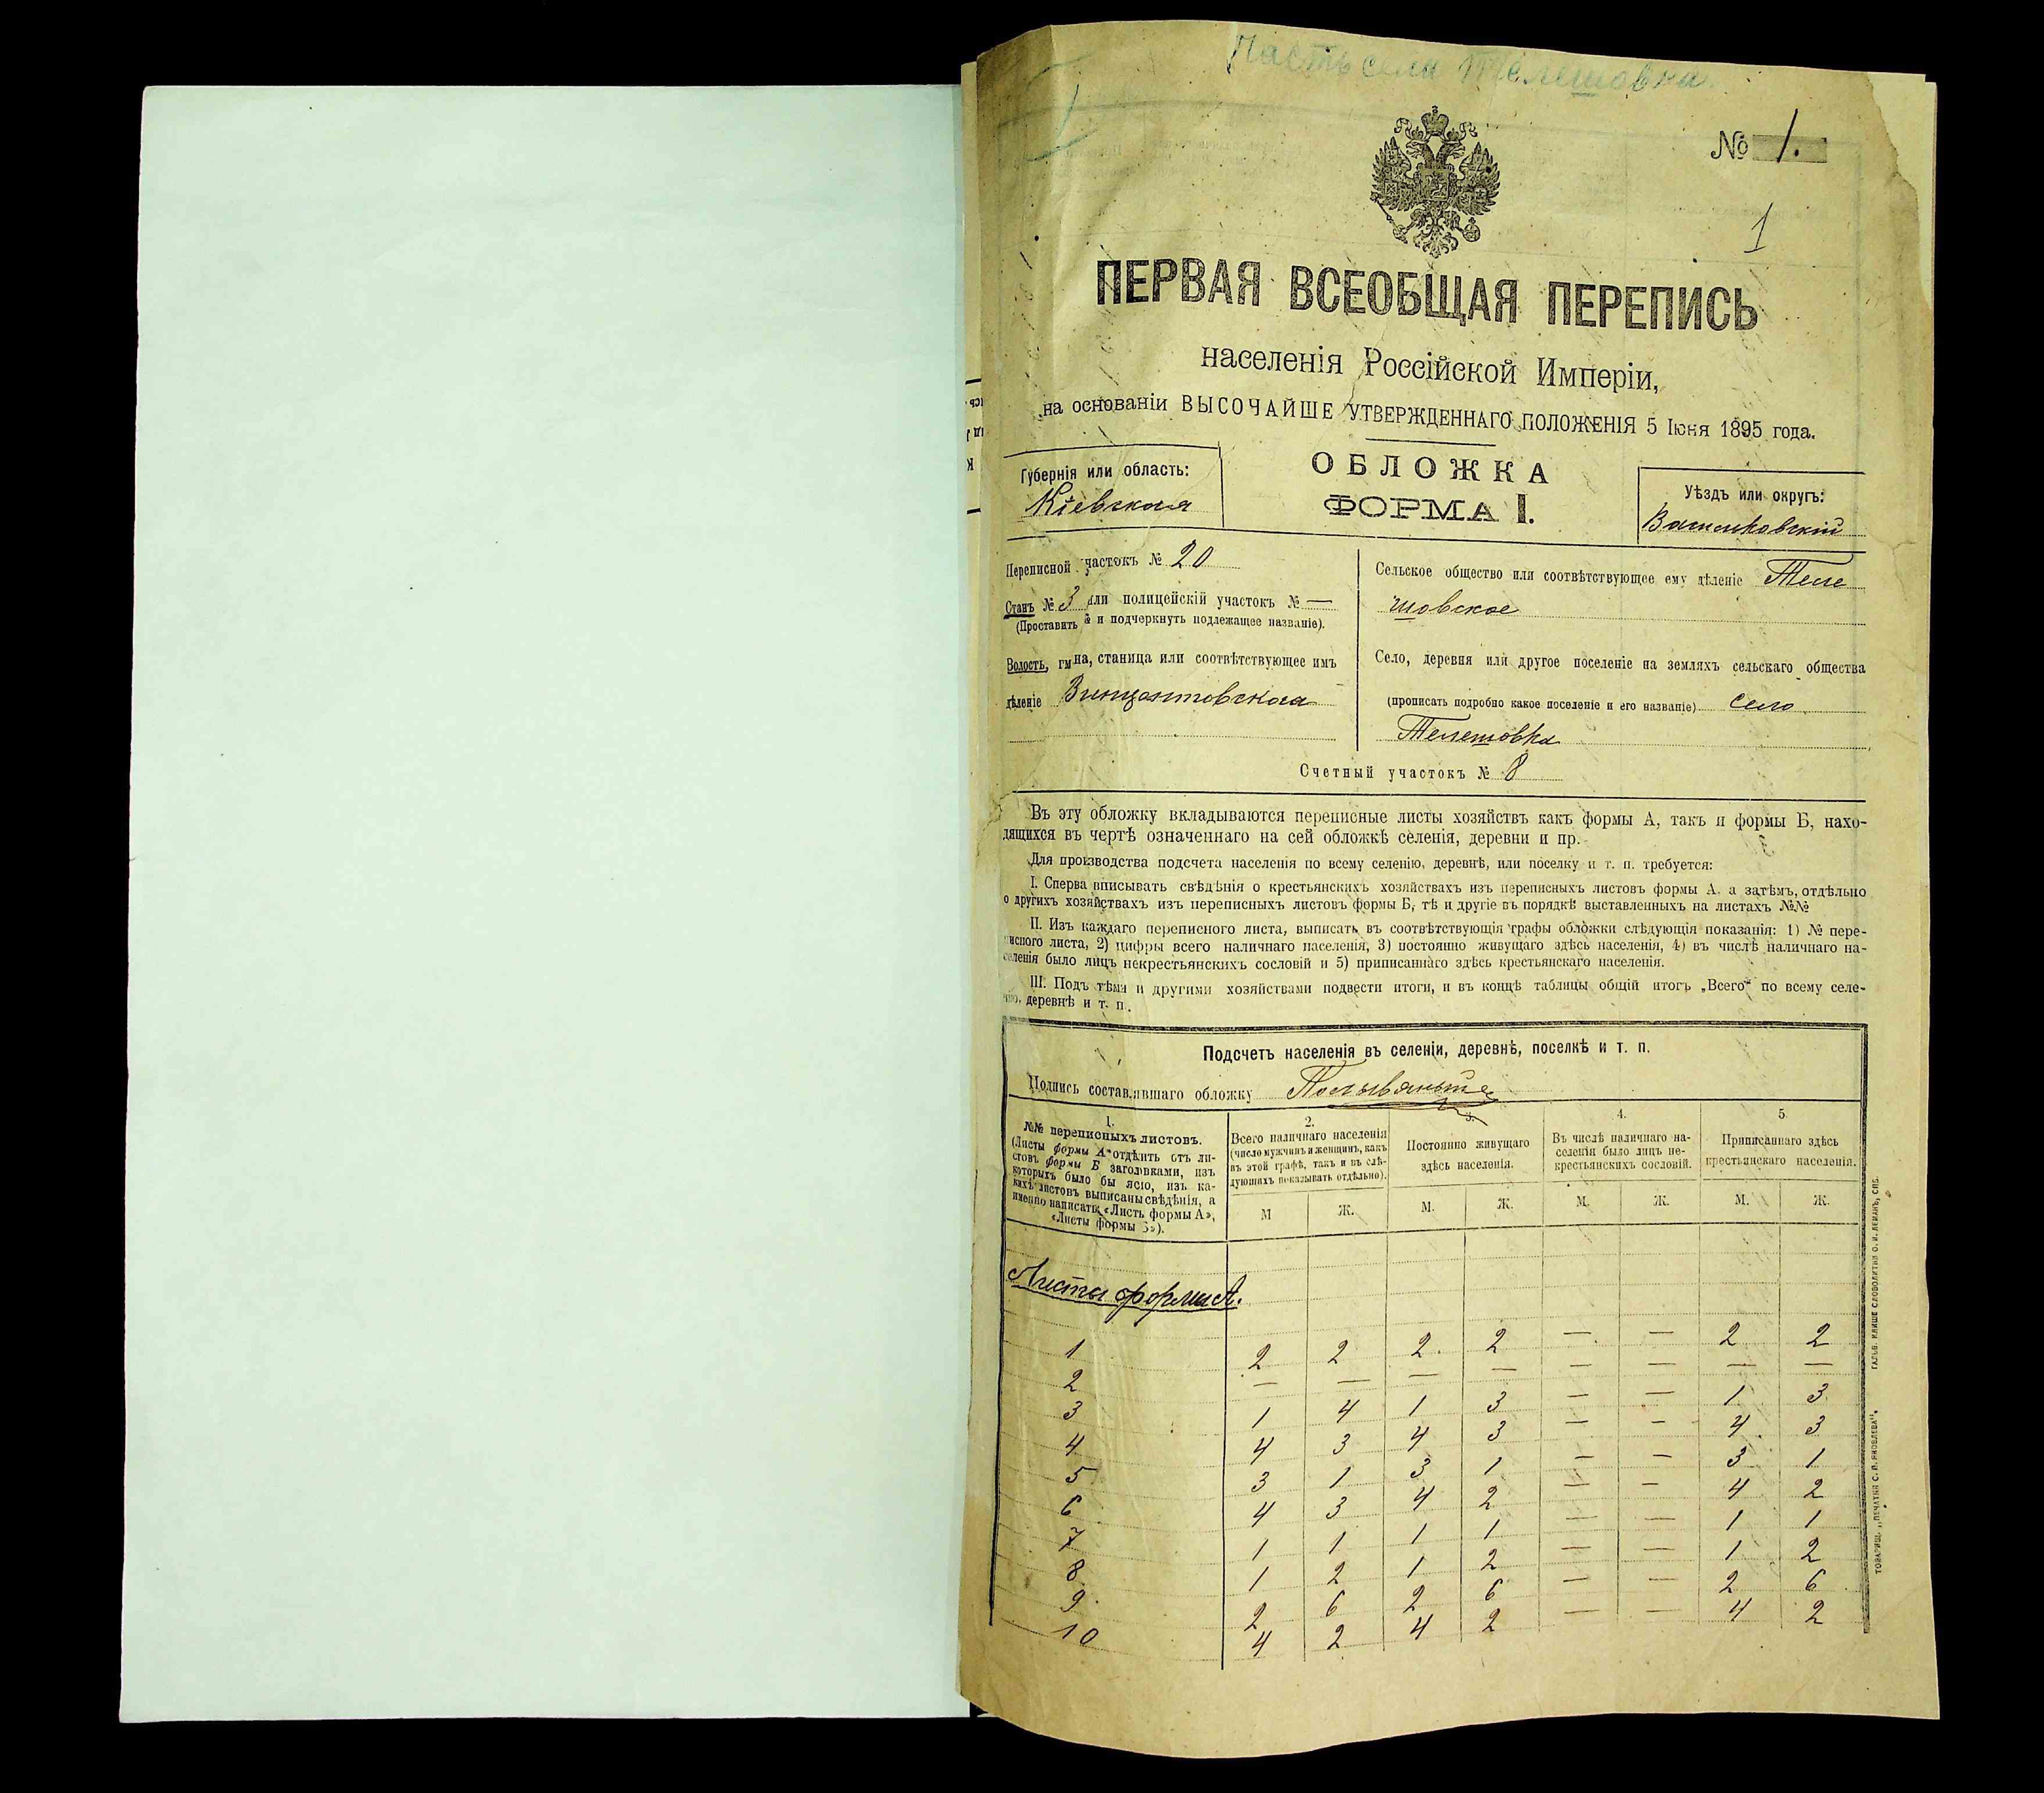 Часть села Телешовка.
№ 1.
1
ПЕРВАЯ ВСЕОБЩАЯ ПЕРЕПИСЬ
населенія Россійской Имперіи,
на основаніи ВЫСОЧАЙШЕ УТВЕРЖДЕННАГО ПОЛОЖЕНІЯ 5 Іюня 1895 года.
Губернія или область:
Кіевская
ОБЛОЖКА
ФОРМА I.
Уѣздъ или округъ:
Васильковскій
Переписной участокъ № 20
Станъ № 3 или полицейскій участокъ № —
(Проставить № и подчеркнуть подлежащее названіе).
Волость, гмина, станица или соотвѣтствующее имъ
дѣленіе Винцентовская
Сельское общество или соотвѣтствующее ему дѣленіе Теле
шовское
Село, деревня или другое поселеніе на земляхъ сельскаго общества
(прописать подробно какое поселеніе и его названіе) село
Телешовка
Счетный участокъ № 8
Въ эту обложку вкладываются переписные листы хозяйствъ какъ формы А, такъ и формы Б, нахо-
дящихся въ чертѣ означеннаго на сей обложкѣ селенія, деревни и пр.
Для производства подсчета населенія по всему селенію, деревнѣ, или поселку и т. п. требуется:
I. Сперва вписывать свѣдѣнія о крестьянскихъ хозяйствахъ изъ переписныхъ листовъ формы А, а затѣмъ, отдѣльно
о другихъ хозяйствахъ изъ переписныхъ листовъ формы Б, тѣ и другіе въ порядкѣ выставленныхъ на листахъ №№
II. Изъ каждаго переписного листа, выписать въ соотвѣтствующія графы обложки слѣдующія показанія: 1) № пере-
писного листа, 2) цифры всего наличнаго населенія, 3) постоянно живущаго здѣсь населенія, 4) въ числѣ наличнаго на-
селенія было лицъ некрестьянскихъ сословій и 5) приписаннаго здѣсь крестьянскаго населенія.
III. Подъ тѣми и другими хозяйствами подвести итоги, и въ концѣ таблицы общій итогъ „Всего“ по всему селе-
нію, деревнѣ и т. п.
Подсчетъ населенія въ селеніи, деревнѣ, поселкѣ и т. п.
Подпись составлявшаго обложку
1.
№№ переписныхъ листовъ.
(Листы формы А отдѣлить отъ ли-
стовъ формы Б заголовками, изъ
которыхъ было бы ясно, изъ ка-
кихъ листовъ выписаны свѣдѣнія, а
именно написать: «Листъ формы А»,
«Листы формы Б»).
2.
Всего наличнаго населенія
(число мужчинъ и женщинъ, какъ
въ этой графѣ, такъ и въ слѣ-
дующихъ показывать отдѣльно).
3.
Постоянно живущаго
здѣсь населенія.
4.
Въ числѣ наличнаго на-
селенія было лицъ не-
крестьянскихъ сословій.
5.
Приписаннаго здѣсь
крестьянскаго населенія.
М Ж. М. Ж. М. Ж. М. Ж.
Листы формы А.
1 2 2 2 2 — — 2 2
2 — — — — — — — —
3 1 4 1 3 — — 1 3
4 4 3 4 3 — — 4 3
5 3 1 3 1 — — 3 1
6 4 3 4 2 — — 4 2
7 1 1 1 1 — — 1 1
8 1 2 1 2 — — 1 2
9 2 6 2 6 — — 2 6
10 4 2 4 2 — — 4 2
ТОВАРИЩ. „ПЕЧАТНИ С. П. ЯКОВЛЕВА“. ГАЛЬВ. КЛИШЕ СЛОВОЛИТНИ О. И. ЛЕМАНЪ, СПБ.